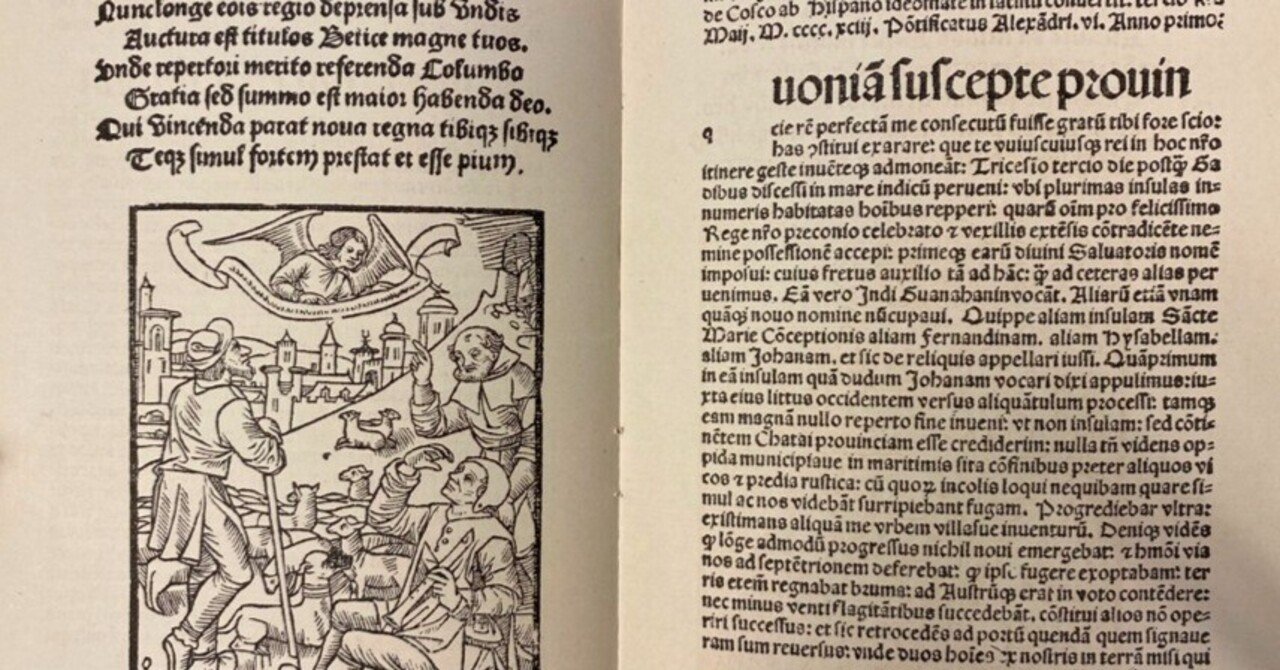 Nunc longe eois regio deprensa sub vndis
Auctura est titulos Betice magne tuos.
Vnde repertori merito referenda Columbo
Gratia sed summo est maior habenda deo.
Qui vincenda parat noua regna tibiqꝫ sibiqꝫ
Teqꝫ simul fortem prestat et esse pium.
de Cosco ab Hispano ideomate in latinū conuertit: tercio
Maij. M. cccc. xciij. Pōtificatus Alexādri. vi. Anno primo
uoniā suscepte prouin
q cie rē perfectā me consecutū fuisse gratū tibi fore scio:
has ꝯstitui exarare: que te vniuscuiusqꝫ rei in hoc nr̄o
itinere geste inuēteqꝫ admoneāt: Tricesio tercio die postqꝫ Ga
dibus discessi in mare indicū perueni: vbi plurimas insulas in-
numeris habitatas hoībus repperi: quarū oīm pro felicissimo
Rege nr̄o preconio celebrato ⁊ vexillis extēsis cōtradicēte ne-
mine possessionē accepi: primeqꝫ earū diuini Saluatoris nomē
imposui: cuius fretus auxilio tā ad hāc: ꝙ̄ ad ceteras alias per
uenimus. Eā vero Indi Guanahanin vocāt. Aliarū etiā vnam
quāqꝫ nouo nomine nūcupaui. Quippe aliam insulam Sācte
Marie Cōceptionis aliam Fernandinam. aliam Hysabellam.
aliam Johanam. et sic de reliquis appellari iussi. Quāprimum
in eā insulam quā dudum Johanam vocari dixi appulimus: iu-
xta eius littus occidentem versus aliquātulum processi: tamqꝫ
eam magnā nullo reperto fine inueni: vt non insulam: sed cōti-
nētem Chatai prouinciam esse crediderim: nulla tn̄ videns op-
pida municipiaue in maritimis sita cōfinibus preter aliquos vi
cos ⁊ predia rustica: cū quoꝝ incolis loqui nequibam quare si-
mul ac nos videbāt surripiebant fugam. Progrediebar vltra:
existimans aliquā me vrbem villasue inuenturū. Deniqꝫ vidēs
ꝙ lōge admodū progressus nichil noui emergebat: ⁊ hmōi via
nos ad septētrionem deferebat: ꝙ ipse fugere exoptabam: ter
ris etem̄ regnabat bruma: ad Austrūqꝫ erat in voto cōtēdere:
nec minus venti flagitātibus succedebāt. cōstitui alios nō ope-
riri successus: et sic retrocedēs ad portū quendā quem signaue
ram sum reuersus: vnde duos hoīes ex nostris in terrā misi qui